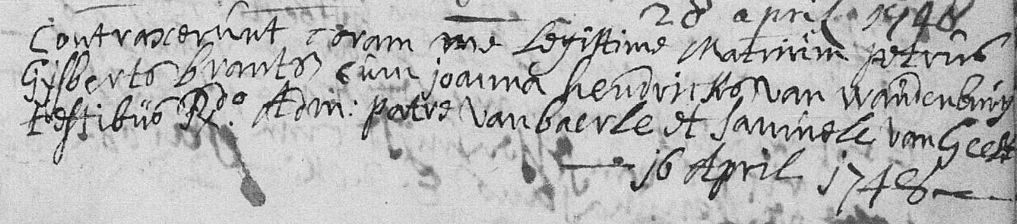 28 april 1748
Contraxerunt coram me legittime Matrim̄ petrus
Gijsberts brants cum joanna hendricks van wandenburg
testibus Rdo. Adm: patre van baerle et samuele van Geest
16 April 1748